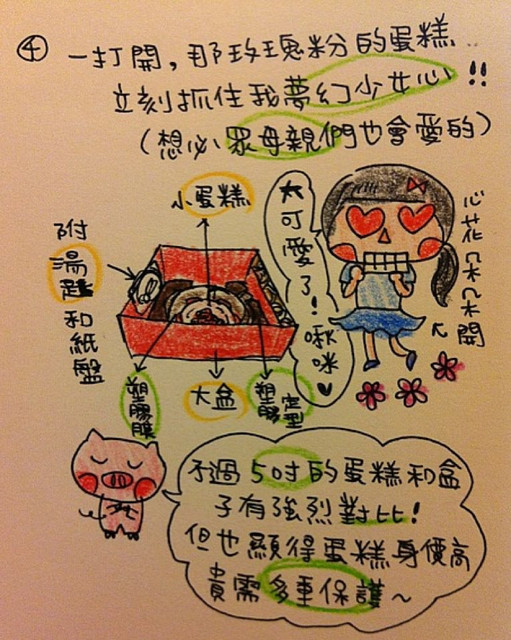 ④ 一打開，那玫瑰粉的蛋糕...
立刻抓住我夢幻少女心!!
(想必眾母親們也會愛的)
小蛋糕
太可愛了！啾咪♥
心花朵朵開
附湯匙和紙盤
塑膠膜
大盒
塑膠定型
不過5吋的蛋糕和盒
子有強烈對比！
但也顯得蛋糕身價高
貴需多重保護～